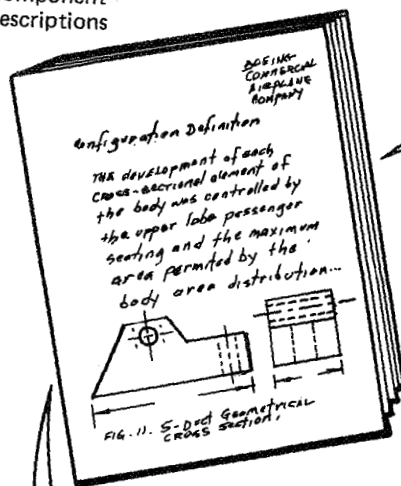 omponent
escriptions
BOEING
COMMERCIAL
AIRPLANE
COMPANY
Configuration Definition
THE development of each
cross-sectional element of
the body was controlled by
the upper lobe passenger
seating and the maximum
area permited by the
body area distribution...
FIG. 11. S-Duct Geometrical
CROSS Section.